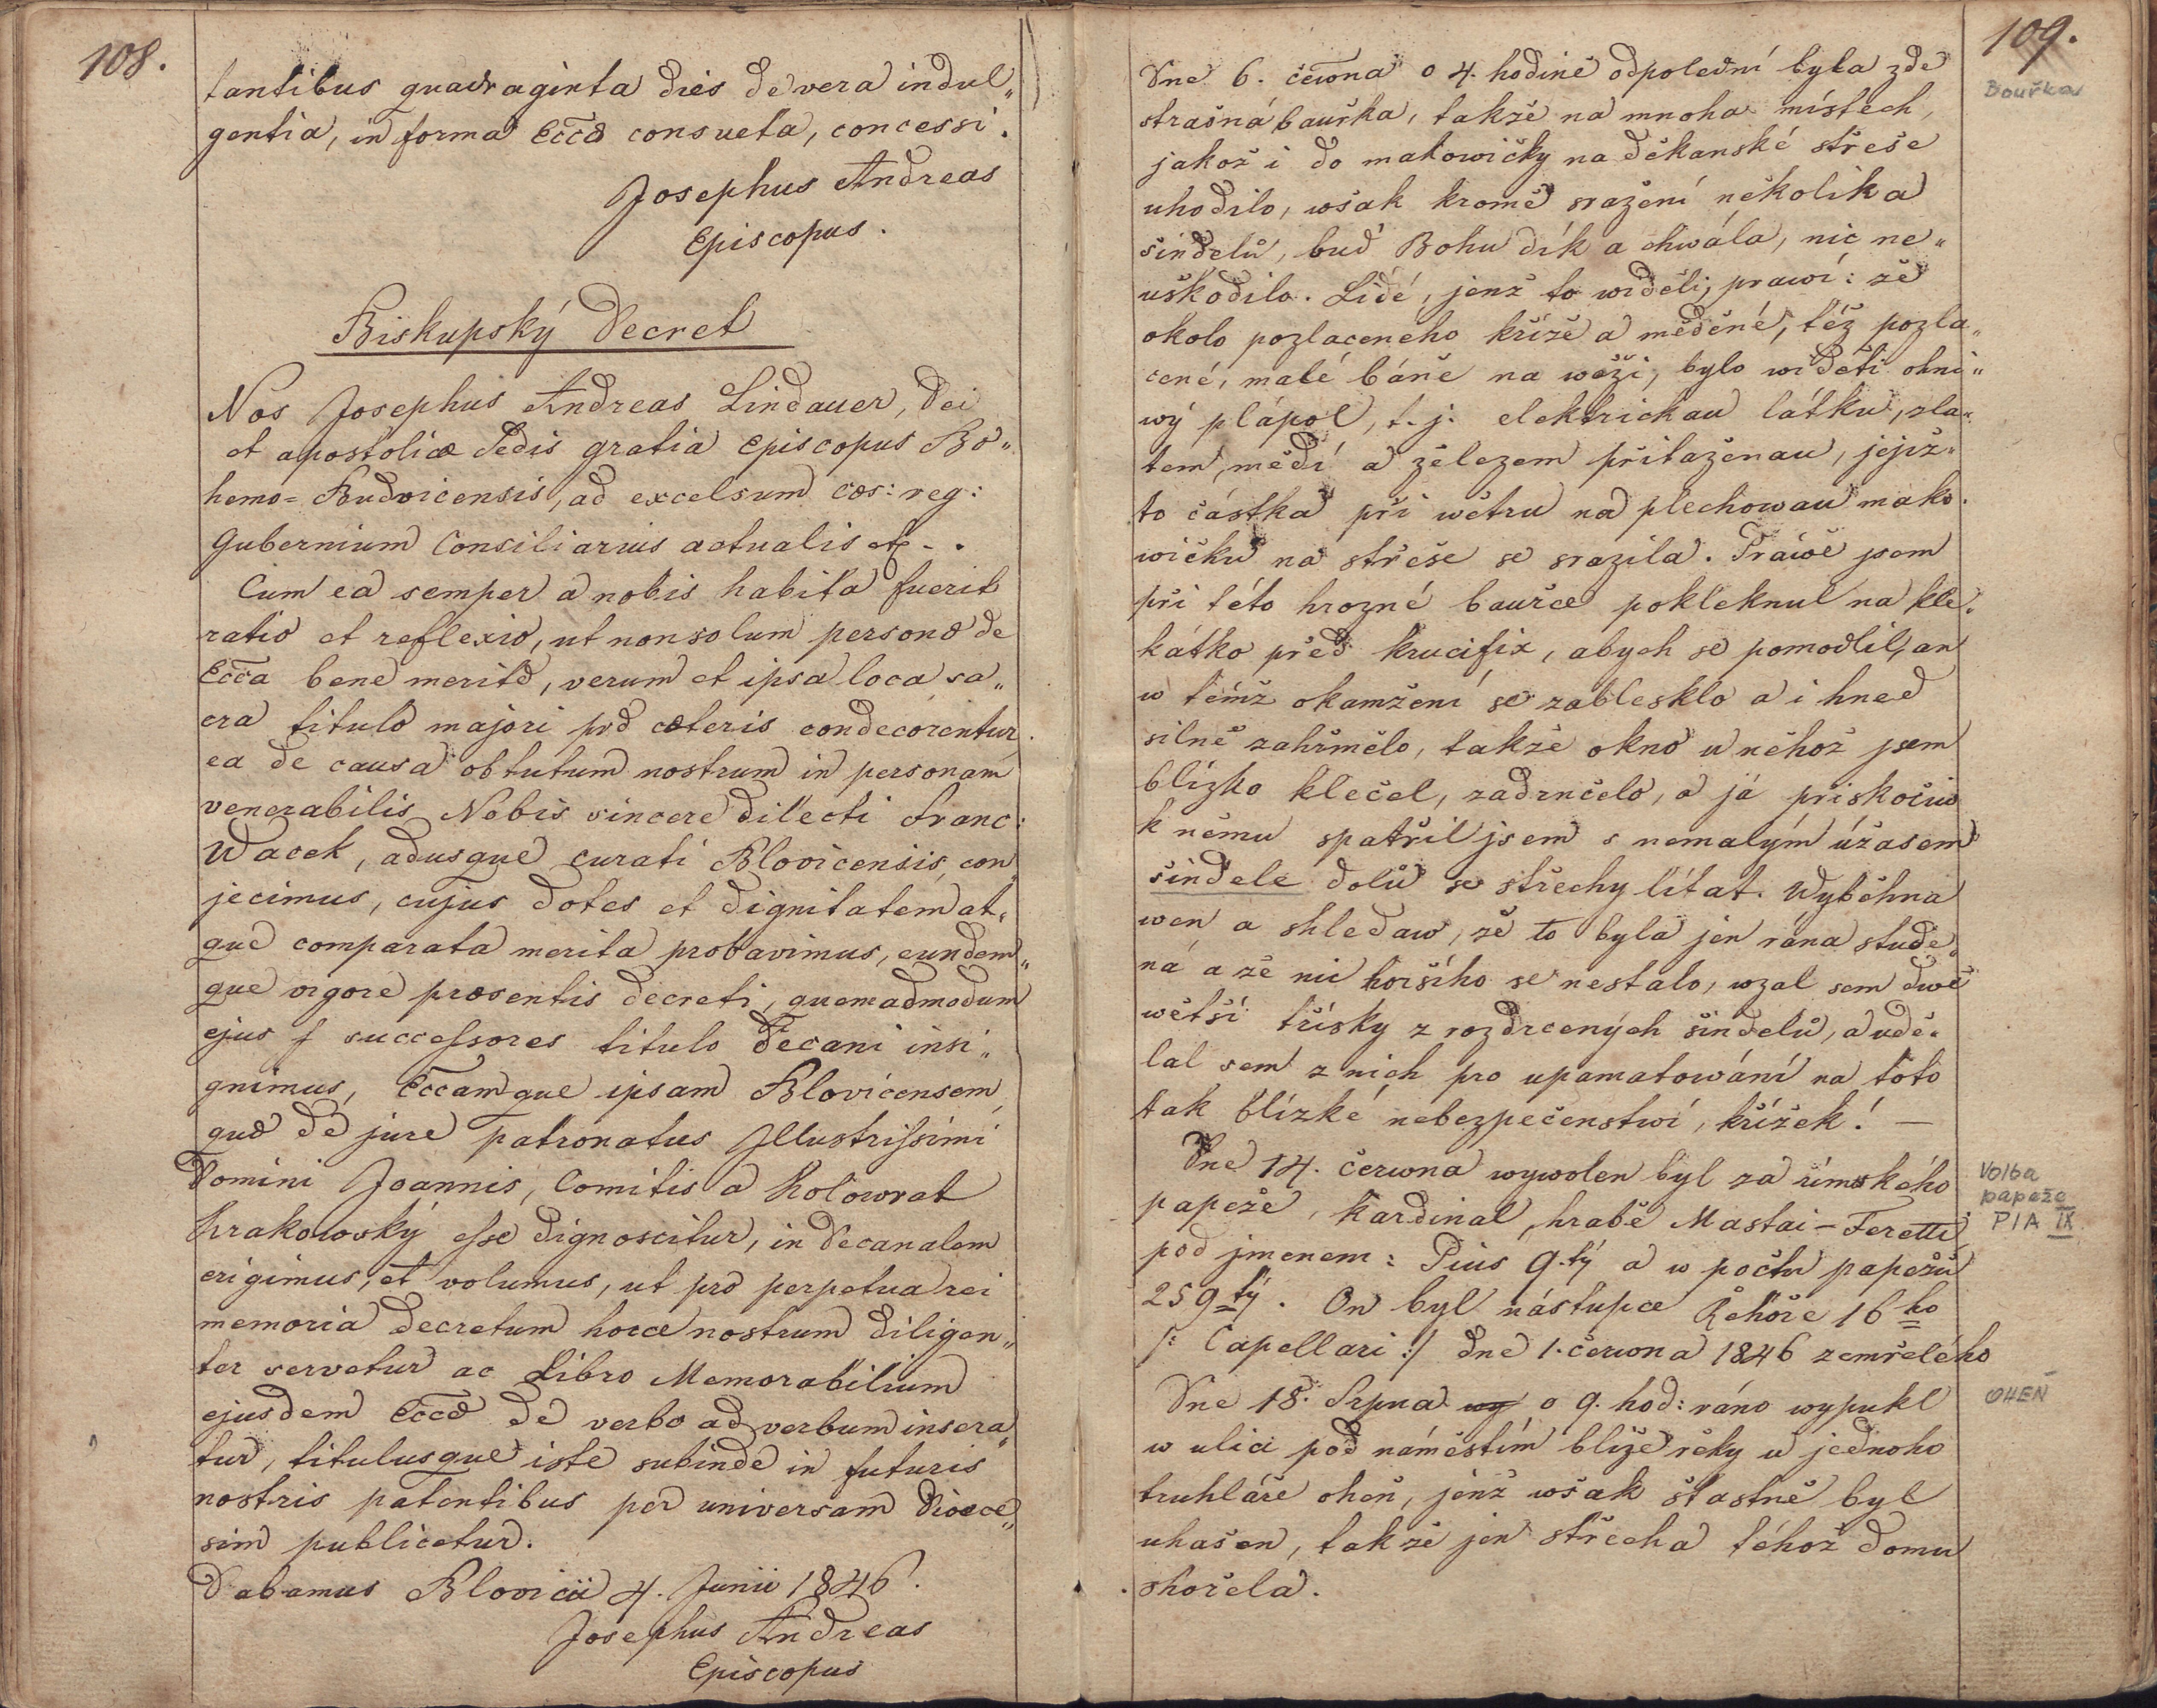 108.
tantibus quadraginta dies de vera indul„
gentia, in forma Eccæ consueta, concessi.
Josephus Andreas
Episcopus.
Biskupský Decret
Nos Josephus Andreas Lindauer, Dei
et apostolicæ Sedis gratia Episcopus Bo„
hemo=Budvicensis, ad excelsum cæs: reg:
Gubernium Consiliarius actualis etc - .
Cum ea semper a nobis habita fuerit
ratio et reflexio, ut non solum personæ de
Ecca bene meritæ, verum et ipsa loca sa„
cra titulo majori præ cæteris condecorentur
ea de causa obtutum nostrum in personam
venerabilis Nobis sincere dilecti Franc:
Wacek, adusque curati Blovicensis, con„
jecimus, cujus dotes et dignitatem at„
que comparata merita probavimus, eundem„
que vigore præsentis decreti, quemadmodum
ejus successores titulo Decani insi„
gnimus, Eccamque ipsam Blovicensem,
quæ de jure patronatus Jllustrissimi
Domini Joannis, Comitis a Kolowrat
Krakowský esse dignoscitur, in Decanalem
erigimus, et volumus, ut pro perpetua rei
memoria decretum hocce nostrum diligen„
ter servetur ac Libro Memorabilium
ejusdem Eccæ de verbo ad verbum insera„
tur, titulusque iste subinde in futuris
nostris patentibus per universam Dioece„
sim publicetur.
Dabamus Blovicii 4. Junii 1846.
Josephus Andreas
Episcopus
109.
Bouřka
Dne 6. čerwna o 4. hodině odpolední byla zde
strašná bauřka, takže na mnoha místech,
jakož i do makowičky na děkanské střeše
uhodilo, wšak kromě sražení několika
šindelů, buď Bohu dík a chwála, nic ne„
uškodilo. Lidé, jenž to widěli, prawí: že
okolo pozlaceného kříže a měděné, též pozla„
cené, malé báně na wěži, bylo widěti ohni„
wý plápol, t. j. elektrickau látku, zla„
tem, mědí a železem přitaženau, jejíž„
to částka při wětru na plechowau mako„
wičku na střeše se srazila. Práwě jsem
při této hrozné bauřce pokleknul na kle„
kátko před krucifix, abych se pomodlil, an
w témž okamžení se zablesklo a i hned
silně zahřmělo, takže okno u něhož jsem
blízko klečel, zadrnčelo, a já přiskočiw
k němu spatřil jsem s nemalým úžasem
šindele dolů se střechy lítat. Wyběhna
wen a shledaw, že to byla jen rána stude„
ná a že nic horšího se nestalo, wzal sem dwě
wětší třísky z rozdrcených šindelů, a udě„
lal sem z nich pro upamatowání na toto
tak blízké nebezpečenstwí, křížek! —
Volba
papeže
PIA IX
Dne 14. čerwna wywolen byl za římského
papeže, kardinal, hrabě Mastai-Feretti,
pod jmenem: Pius 9.tý a w počtu papežů
259tý. On byl nástupce Řehoře 16ho
/: Capellari :/ dne 1. čerwna 1846 zemřelého
OHEŇ
Dne 18. Srpna wy o 9. hod: ráno wypukl
w ulici pod náměstím blíže řeky u jednoho
truhláře oheň, jenž wšak šťastně byl
uhašen, takže jen střecha téhož domu
shořela.